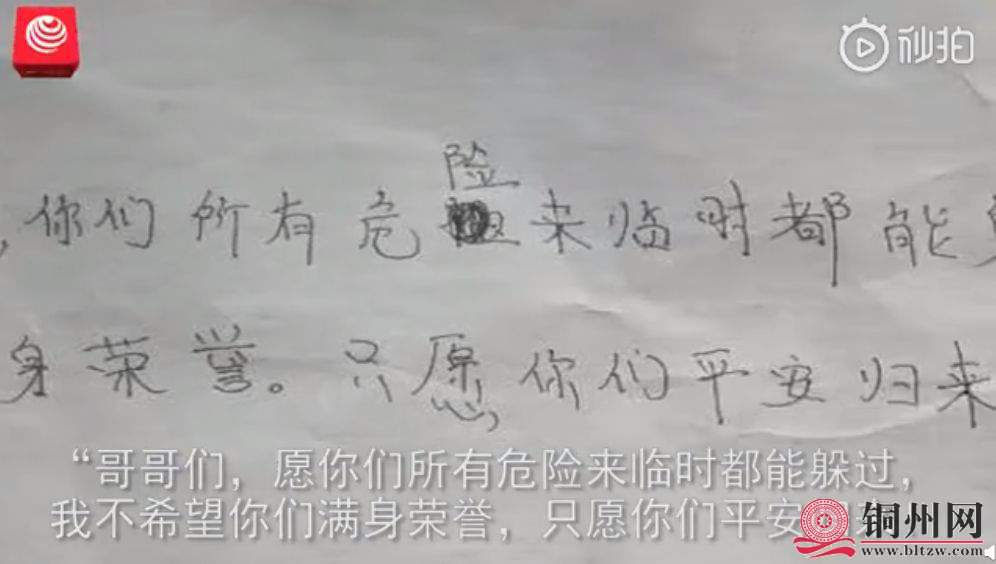 秒拍
险
，你们所有危来临时都能
身荣誉。只愿你们平安归来
“哥哥们，愿你们所有危险来临时都能躲过，
我不希望你们满身荣誉，只愿你们平安
铜州网
www.bltzw.com